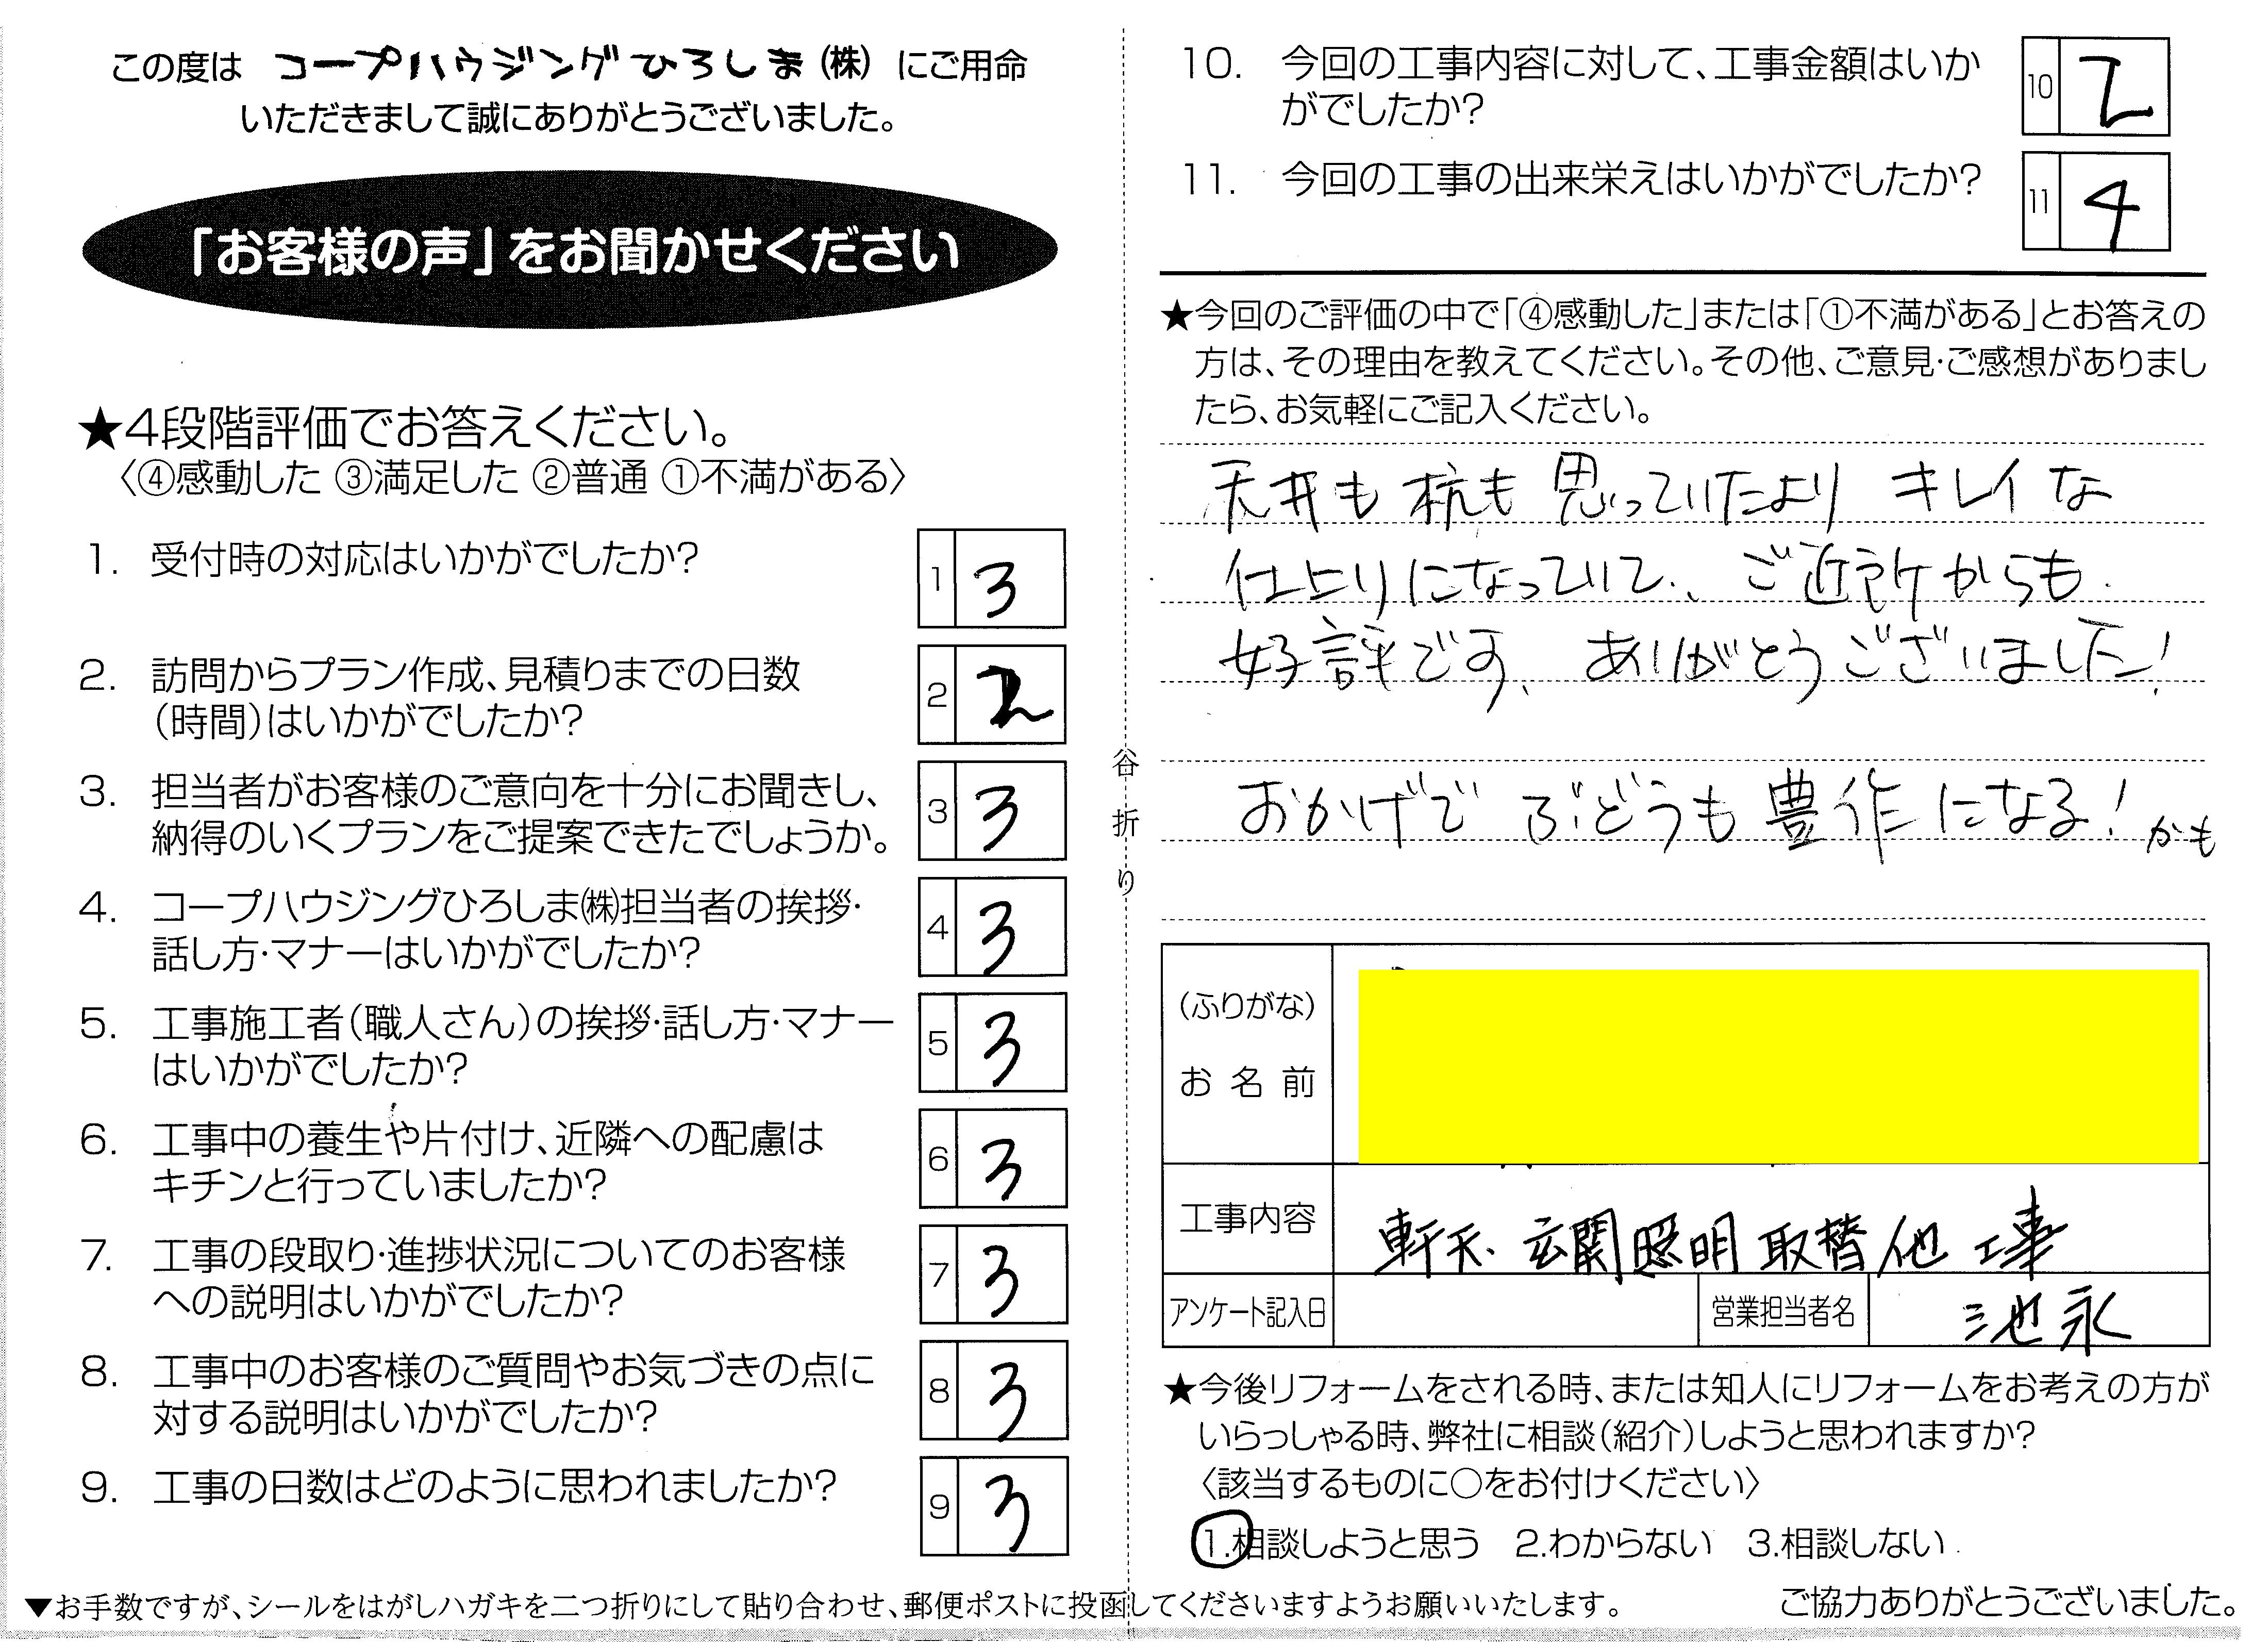 この度は コープハウジングひろしま(株) にご用命
いただきまして誠にありがとうございました。
「お客様の声」をお聞かせください
★4段階評価でお答えください。
〈④感動した ③満足した ②普通 ①不満がある〉
1. 受付時の対応はいかがでしたか?
1 3
2. 訪問からプラン作成、見積りまでの日数
(時間)はいかがでしたか?
2 2
3. 担当者がお客様のご意向を十分にお聞きし、
納得のいくプランをご提案できたでしょうか。
3 3
4. コープハウジングひろしま㈱担当者の挨拶・
話し方・マナーはいかがでしたか?
4 3
5. 工事施工者(職人さん)の挨拶・話し方・マナー
はいかがでしたか?
5 3
6. 工事中の養生や片付け、近隣への配慮は
キチンと行っていましたか?
6 3
7. 工事の段取り・進捗状況についてのお客様
への説明はいかがでしたか?
7 3
8. 工事中のお客様のご質問やお気づきの点に
対する説明はいかがでしたか?
8 3
9. 工事の日数はどのように思われましたか?
9 3
谷折り
10. 今回の工事内容に対して、工事金額はいか
がでしたか?
10 2
11. 今回の工事の出来栄えはいかがでしたか?
11 4
★今回のご評価の中で「④感動した」または「①不満がある」とお答えの
方は、その理由を教えてください。その他、ご意見・ご感想がありまし
たら、お気軽にご記入ください。
天井も杭も思っていたより キレイな
仕上りになっていて、ご近所からも
好評です、ありがとうございました!
おかげで ぶどうも豊作になる! かも
(ふりがな)
お名前
工事内容 軒天、玄関照明取替他工事
アンケート記入日
営業担当者名 池永
★今後リフォームをされる時、または知人にリフォームをお考えの方が
いらっしゃる時、弊社に相談(紹介)しようと思われますか?
〈該当するものに○をお付けください〉
1.相談しようと思う 2.わからない 3.相談しない
▼お手数ですが、シールをはがしハガキを二つ折りにして貼り合わせ、郵便ポストに投函してくださいますようお願いいたします。
ご協力ありがとうございました。